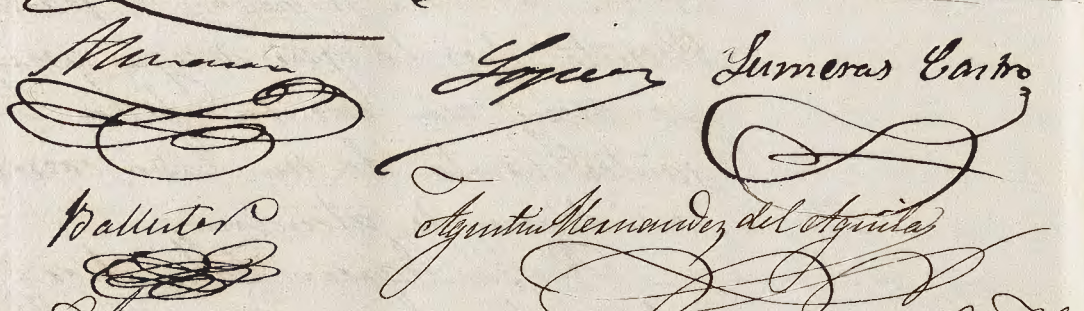 Lopez Lumeras Castro
Ballester Agustin Hernandez del Aguila